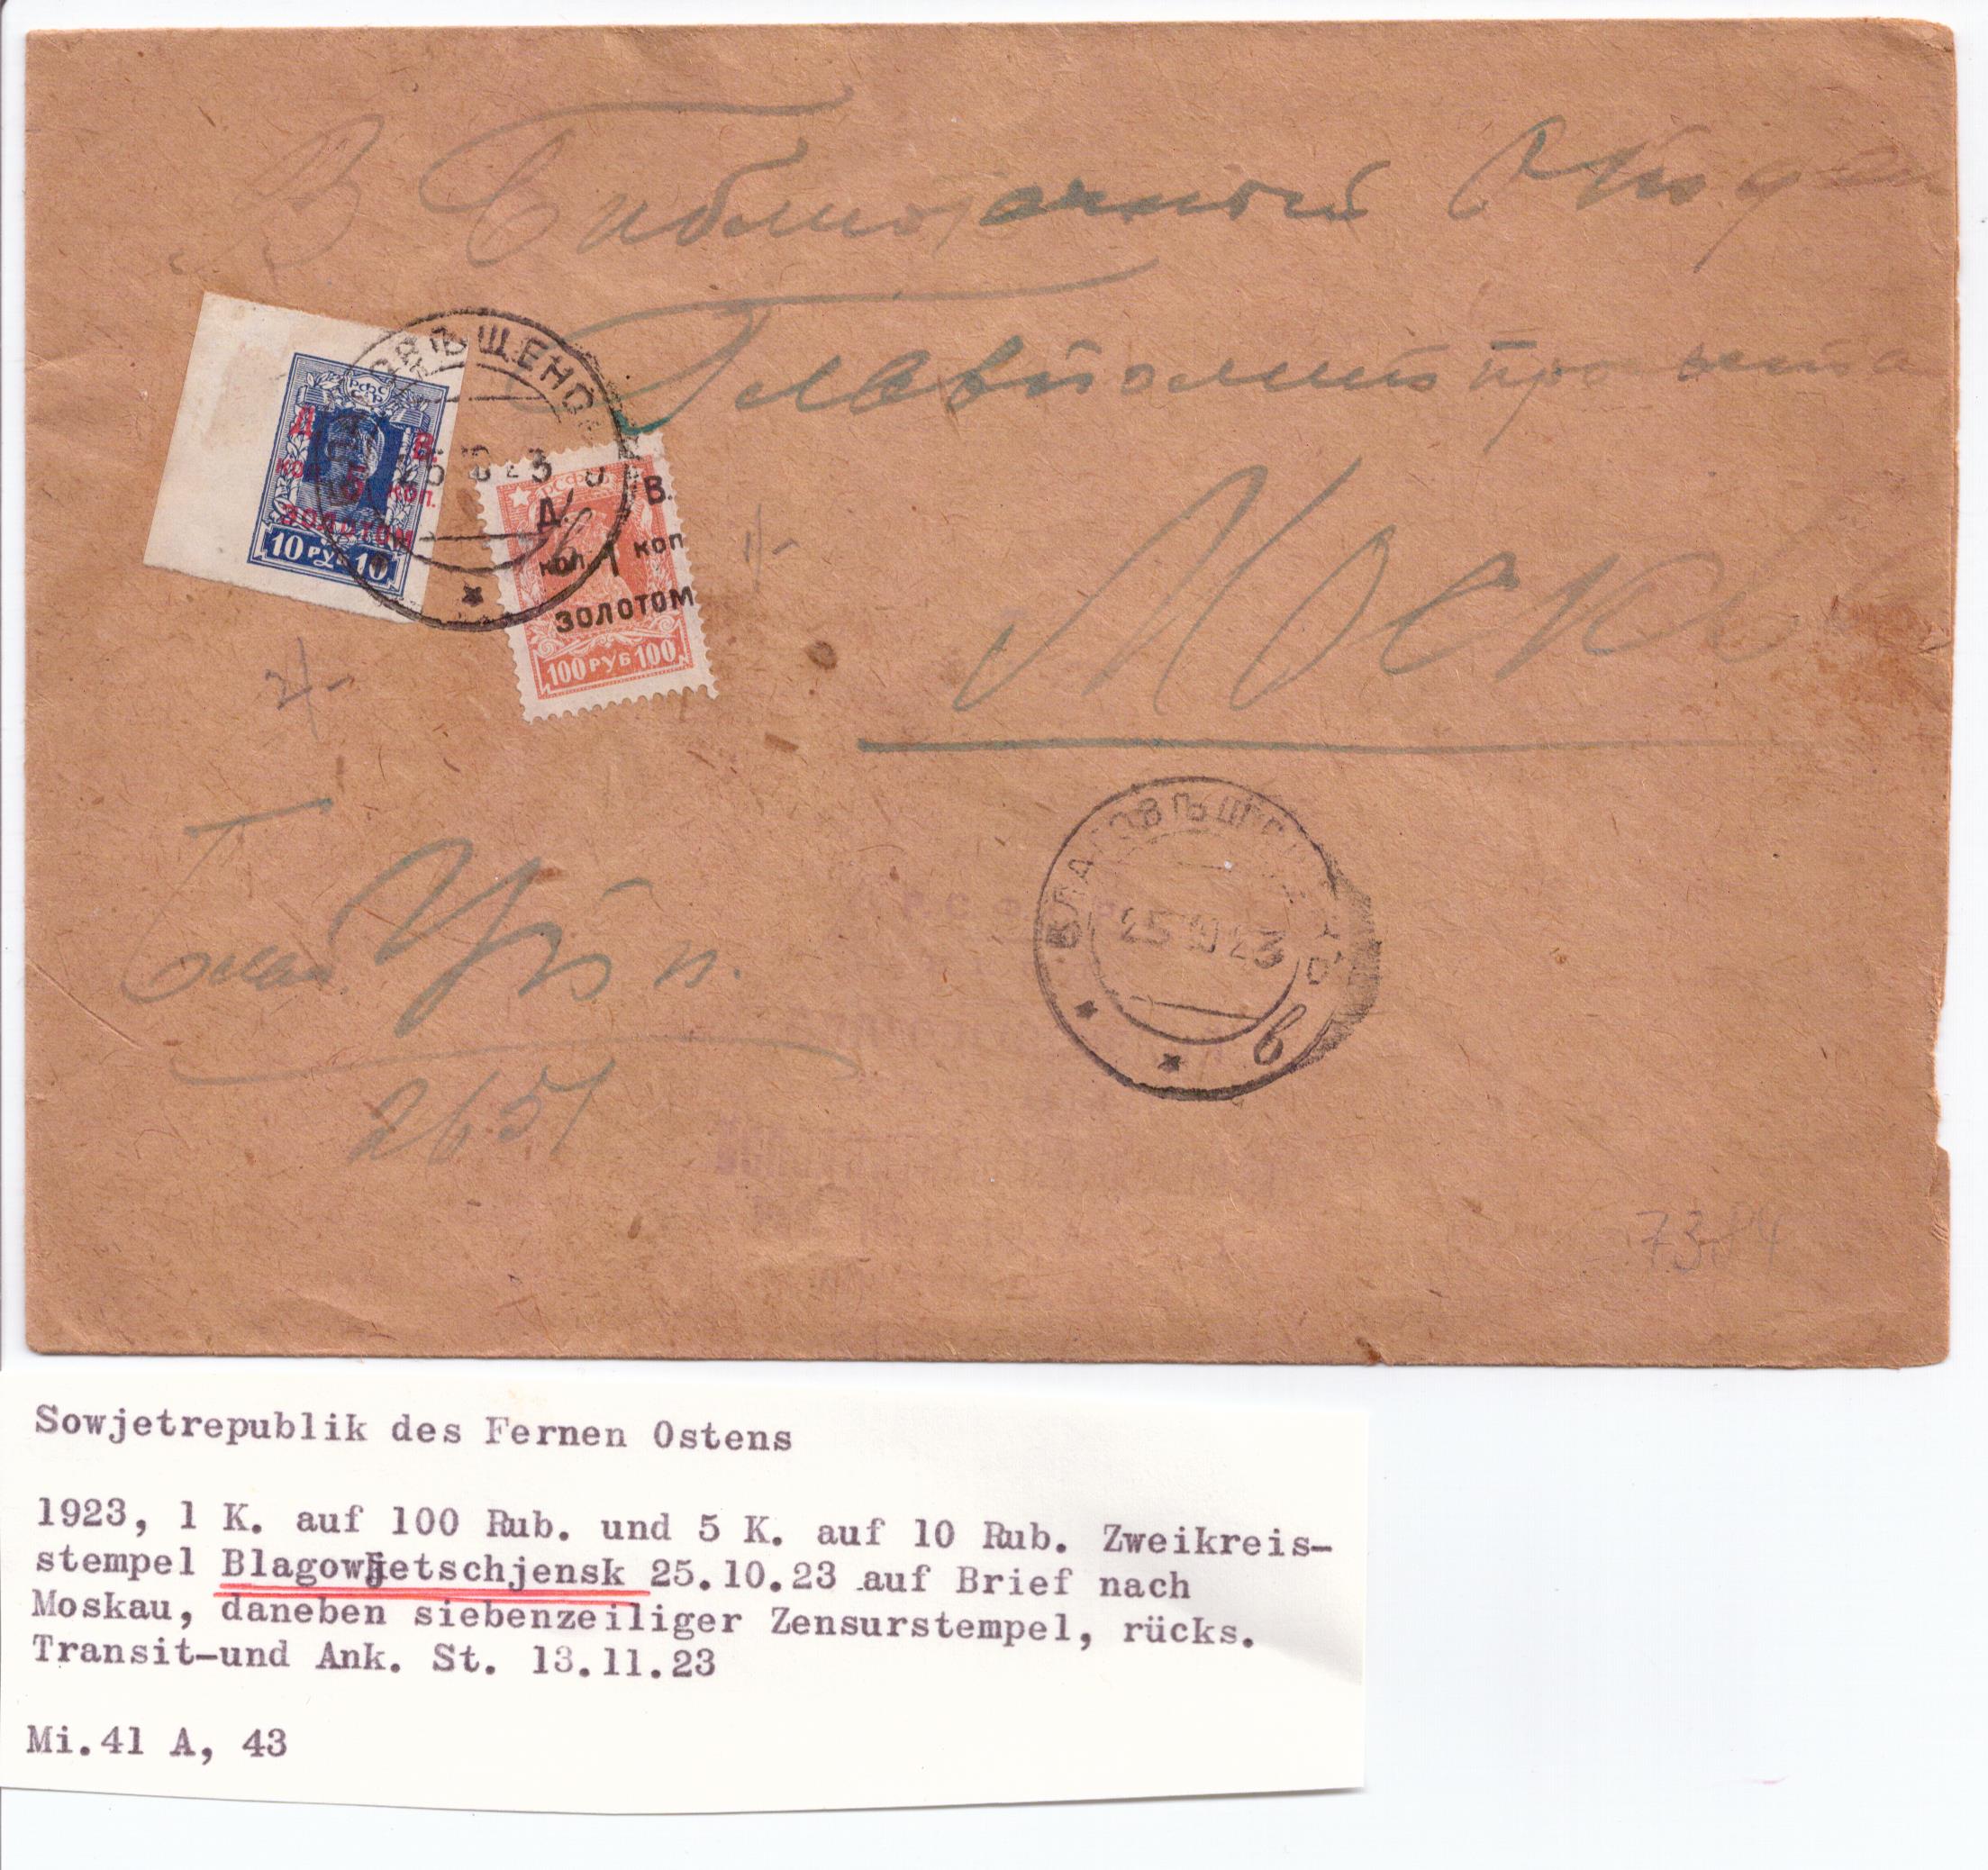 В Библиотечный Отдел
Главполитпросвета
Москва
Благ Угб п.
2651
РСФСР
Д. В.
коп. 5 коп.
золотом
10 РУБ 10
РСФСР
Д. В.
коп. 1 коп.
ЗОЛОТОМ
100 РУБ 100
25 10 23
БЛАГОВѢЩЕНСК
25 10 23
в
Р. С. Ф. С. Р.
7384
Sowjetrepublik des Fernen Ostens
1923, 1 K. auf 100 Rub. und 5 K. auf 10 Rub. Zweikreis-
stempel Blagowjetschjensk 25.10.23 auf Brief nach
Moskau, daneben siebenzeiliger Zensurstempel, rücks.
Transit-und Ank. St. 13.11.23
Mi.41 A, 43